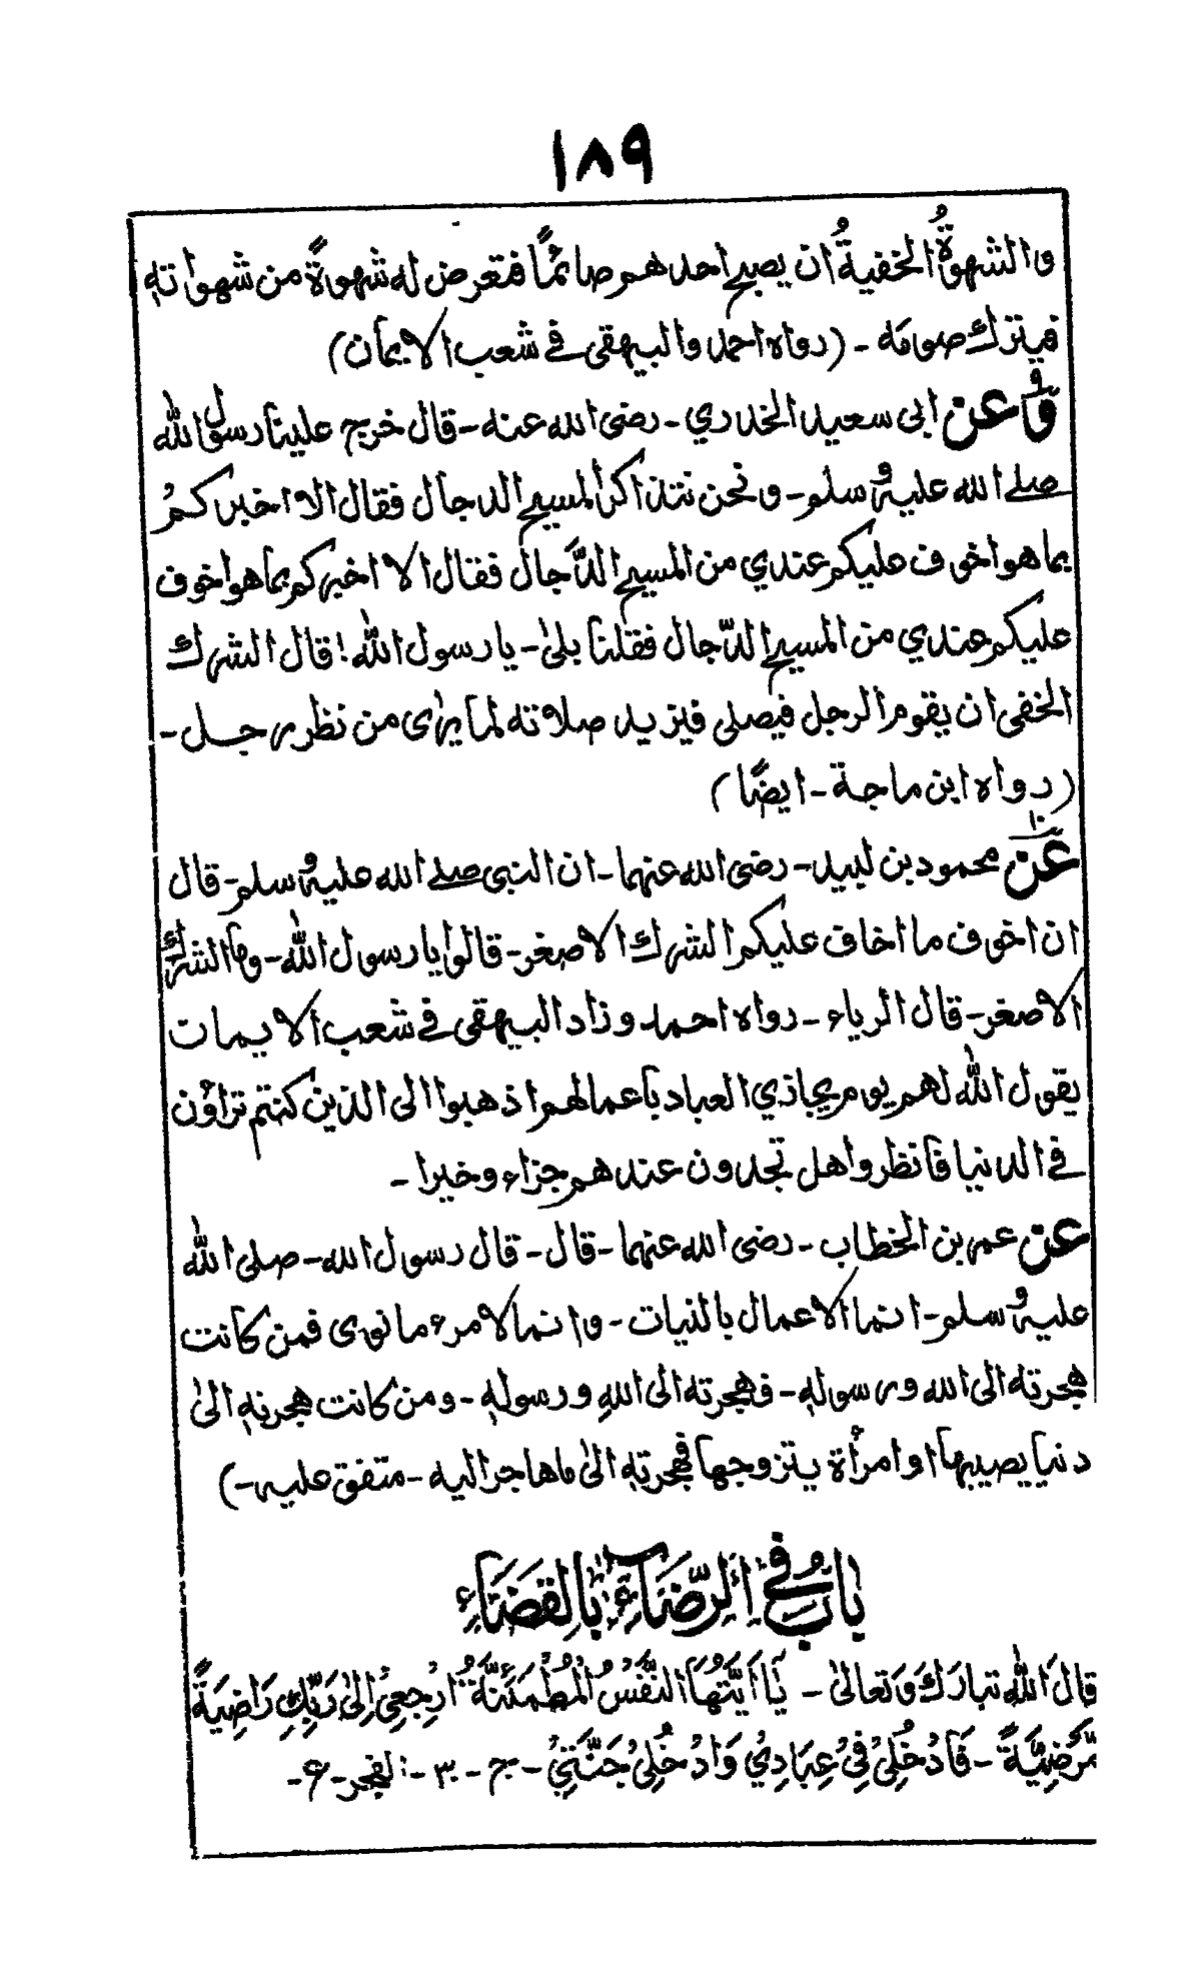 ١٨٩
والشهوةُ الخفيةُ ان يصبح احدهم صائمًا فتعرض له شهوةً من شهواته
فيترك صومه - (رواه احمد والبيهقى فى شعب الايمان)
وعن ابى سعيد الخدري - رضى الله عنه - قال خرج علينا رسول الله
صلے الله عليه وسلم - ونحن نتذاكر المسيح الدجال فقال الا اخبركمُ
بما هو اخوف عليكم عندي من المسيح الدّجال فقال الا اخبركم بما هو اخوف
عليكم عندي من المسيح الدّجال فقلنا بلىٰ - يا رسول الله! قال الشرك
الخفى ان يقوم الرجل فيصلى فيزيد صلاته لما يرٰى من نظر رجل -
(رواه ابن ماجة - ايضًا)
١٠
عن محمود بن لبيد - رضى الله عنهما - ان النبى صلے الله عليه وسلم - قال
ان اخوف ما اخاف عليكم الشرك الاصغر - قالوا يا رسول الله - وما الشرك
الاصغر - قال الرياء - رواه احمد وزاد البيهقى فى شعب الايمان
يقول الله لهم يوم يجازي العباد باعمالهم اذهبوا الى الذين كنتم تراؤن
فى الدنيا فانظروا هل تجدون عندهم جزاء وخيرا -
عن عمر بن الخطاب - رضى الله عنهما - قال - قال رسول الله - صلى الله
عليه وسلم - انما الاعمال بالنيات - وانما لامرء ما نوى فمن كانت
هجرته الى الله ورسوله - فهجرته الى اللهِ ورسولهٖ - ومن كانت هجرته الىٰ
دنيا يصيبها او امرأة يتزوجها فهجرته الىٰ ما هاجر اليه - متفق عليه -)
بابُ فى الرِّضَاءِ بِالِقضَاءِ
قال الله تبارَكَ وَتعالىٰ - يَا اَيَّتُهَا النَّفْسُ الْمُطْمَئِنَّةُ ارْجِعِىْ اِلىٰ رَبِّكِ رَاضِيَةً
مَّرْضِيَّةً - فَادْخُلِىْ فِىْ عِبَادِيْ وَادْخُلِىْ جَنَّتِىْ - ج - ٣٠ - الفجر - ع -